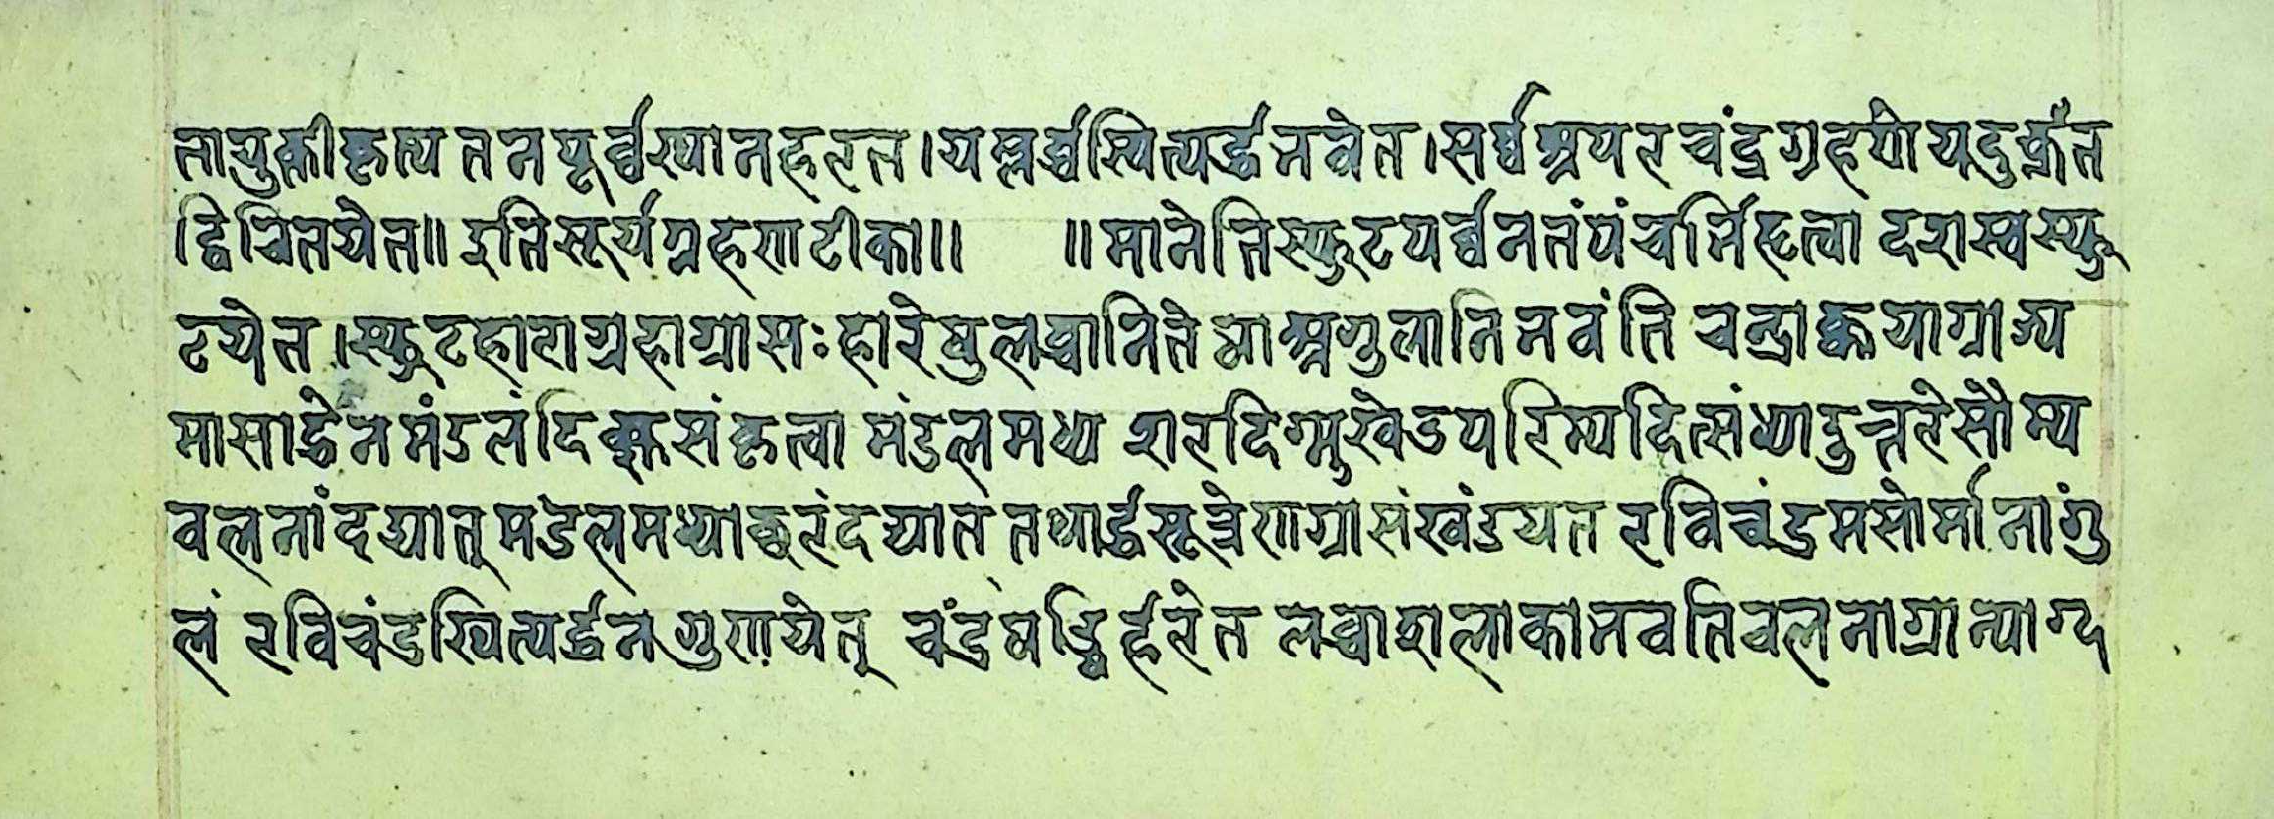 तायुक्तीकृत्य तन पूर्व्वस्यानहरत । यल्लब्धस्थित्यर्द्धनवेत । सर्व्वश्रपरचंद्रग्रहणोयदुक्रंत
द्विचितयेत ॥ इतिसूर्यग्रहणटीका ॥ ॥ मानेतिस्फुटपर्व्वनतंपंचर्भिहृत्वा दशस्वस्फु
टयेत । स्फुटहाराग्रहाग्रासः हारेषुलब्धानिते भाश्रगुलानिनवंति चन्द्रार्क्कयाग्राज्य
मासार्द्धेनमंडलंदिक्कसंकृत्वा मंडलमध्य शरदिग्मुखेउपरिम्यदित्संध्यादुत्तरेसौम्य
वलनांदद्यात् मडलमध्याच्छरंदद्यात तथार्द्धसूत्रेणग्रासंखंडयत रविचंद्रमसोर्मानांगु
लं रविचंद्रस्थित्यर्द्धनगुणयेत् चंद्रषड्भिर्हरेत लब्धाशलाकानवतिचलनाग्रान्याग्द